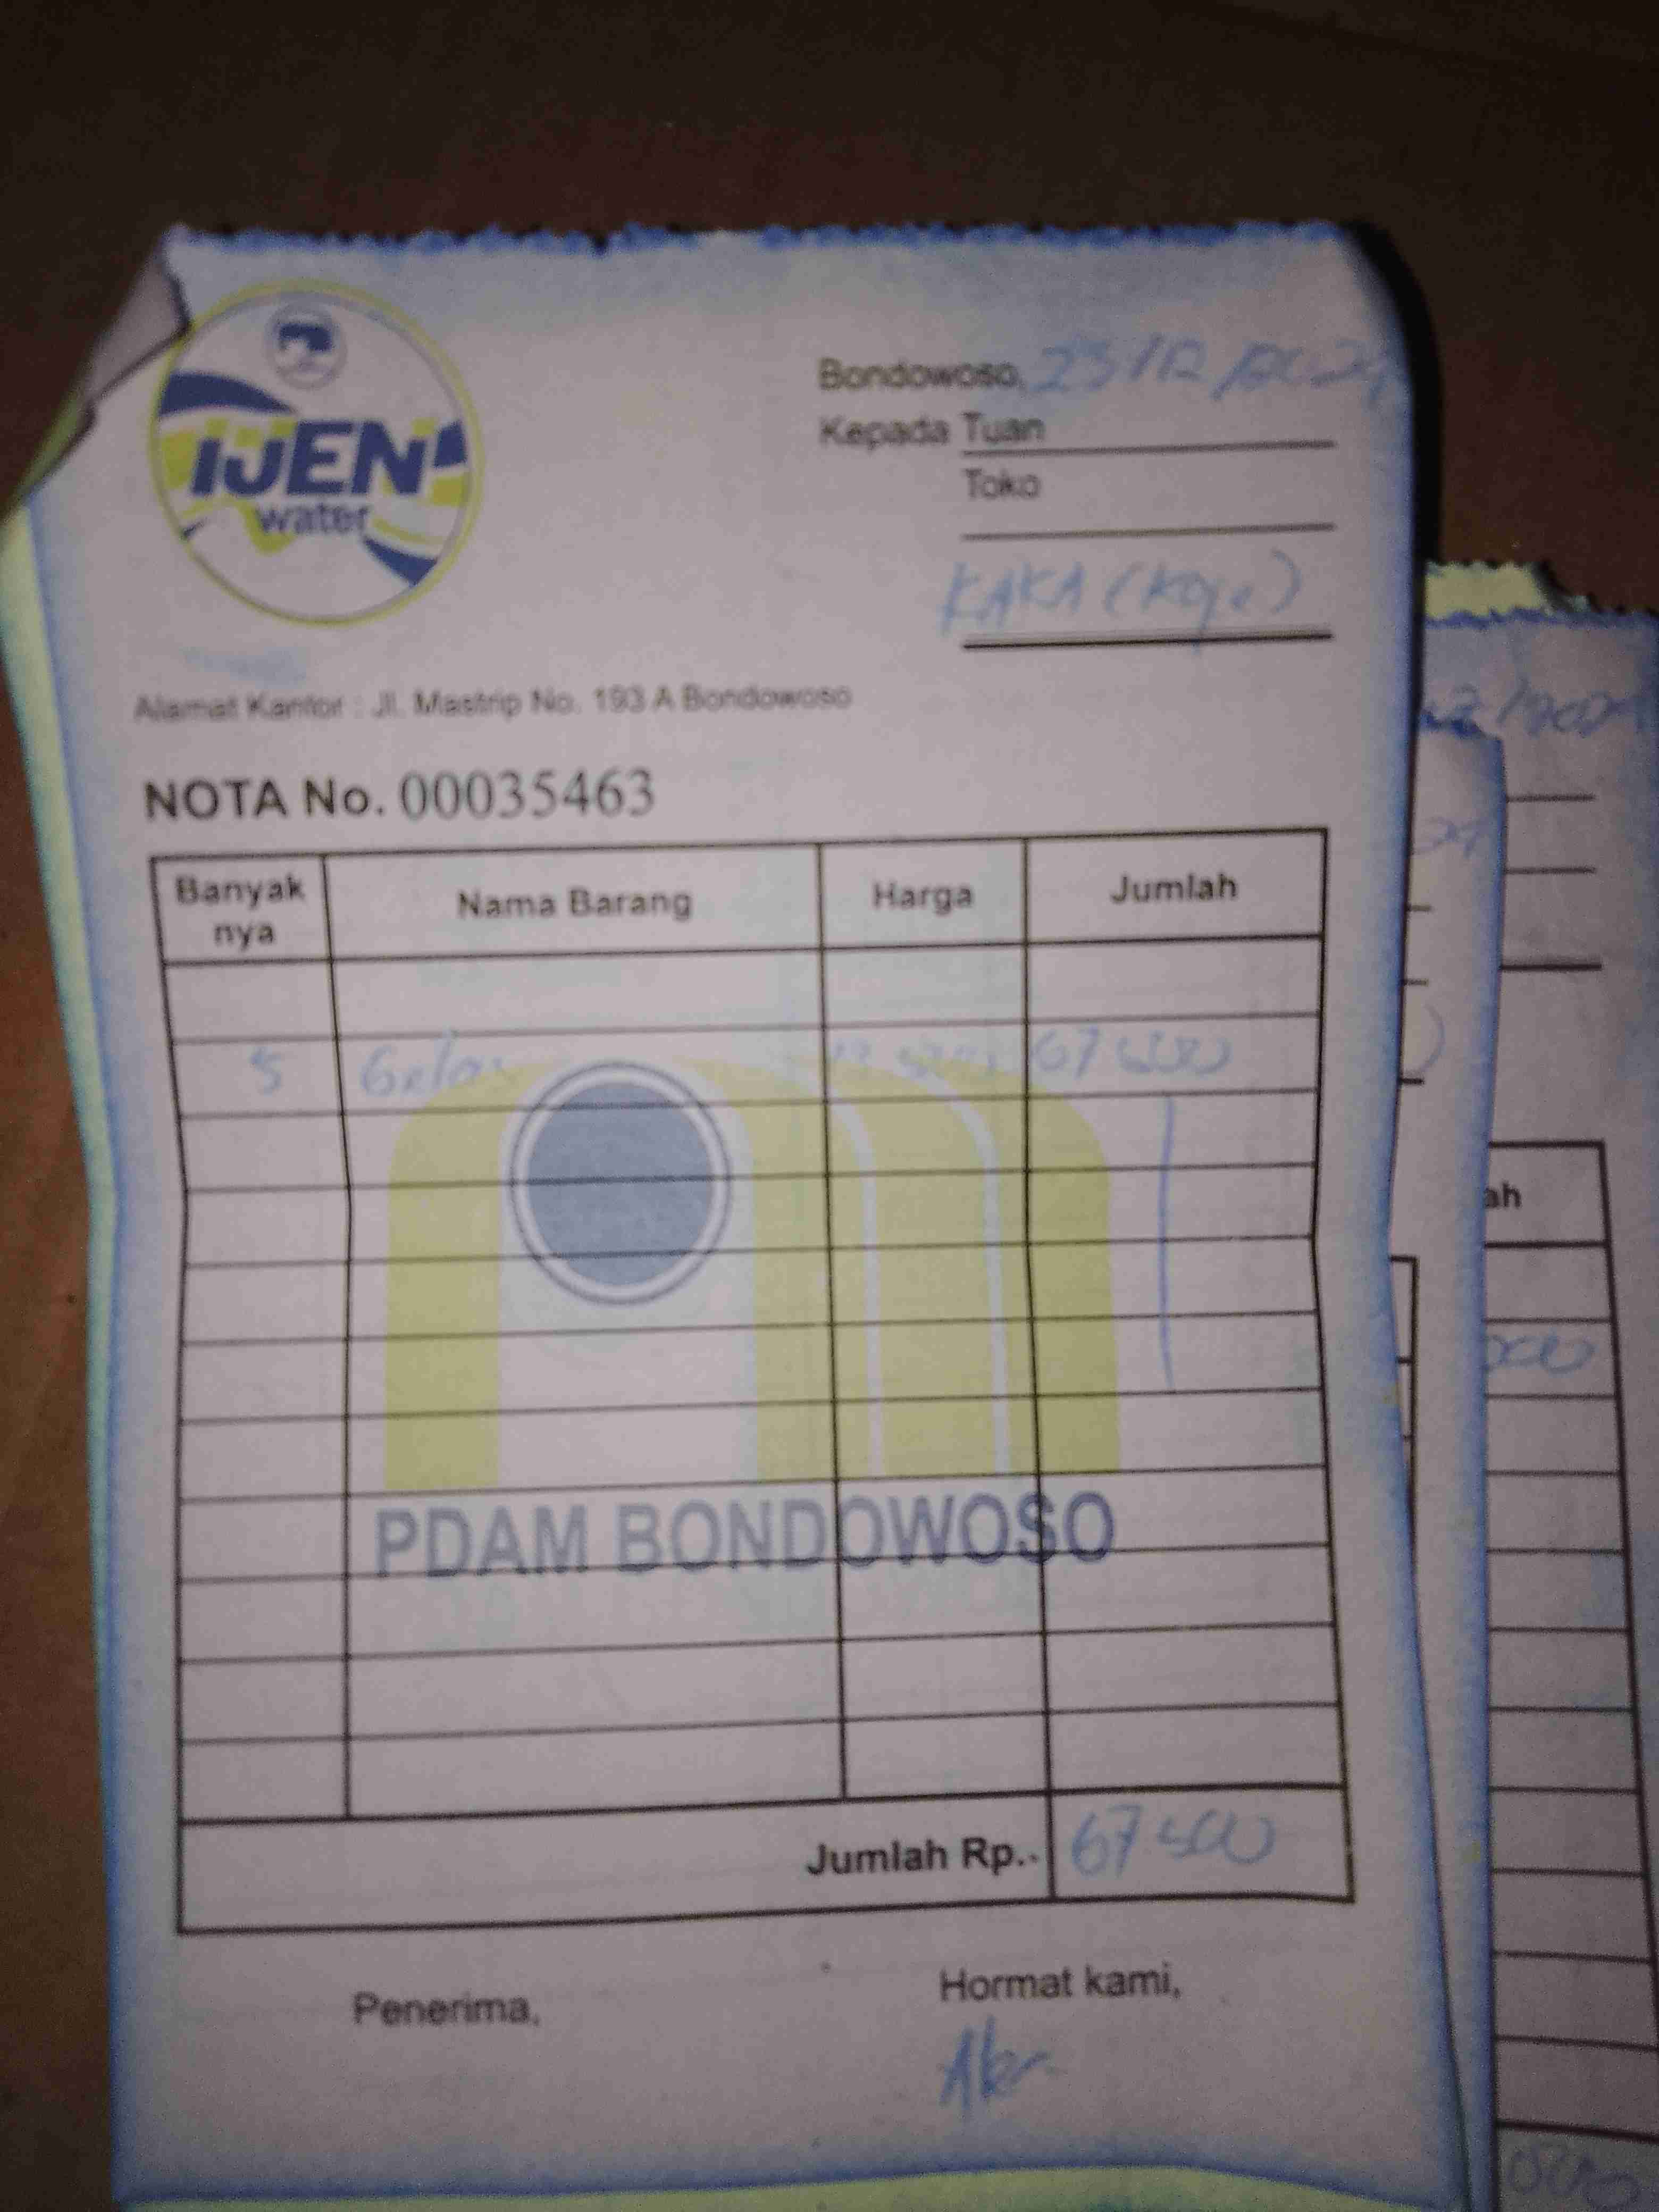 IJEN
water
Bondowoso, 23/12/2024
Kepada Tuan
Toko
KAKA
Alamat Kantor : Jl. Mastrip No. 193 A Bondowoso
NOTA No. 00035463
Banyak nya Nama Barang Harga Jumlah
5 Gelas 67 500
PDAM BONDOWOSO
Jumlah Rp.- 67 500
Penerima,
Hormat kami,
ah